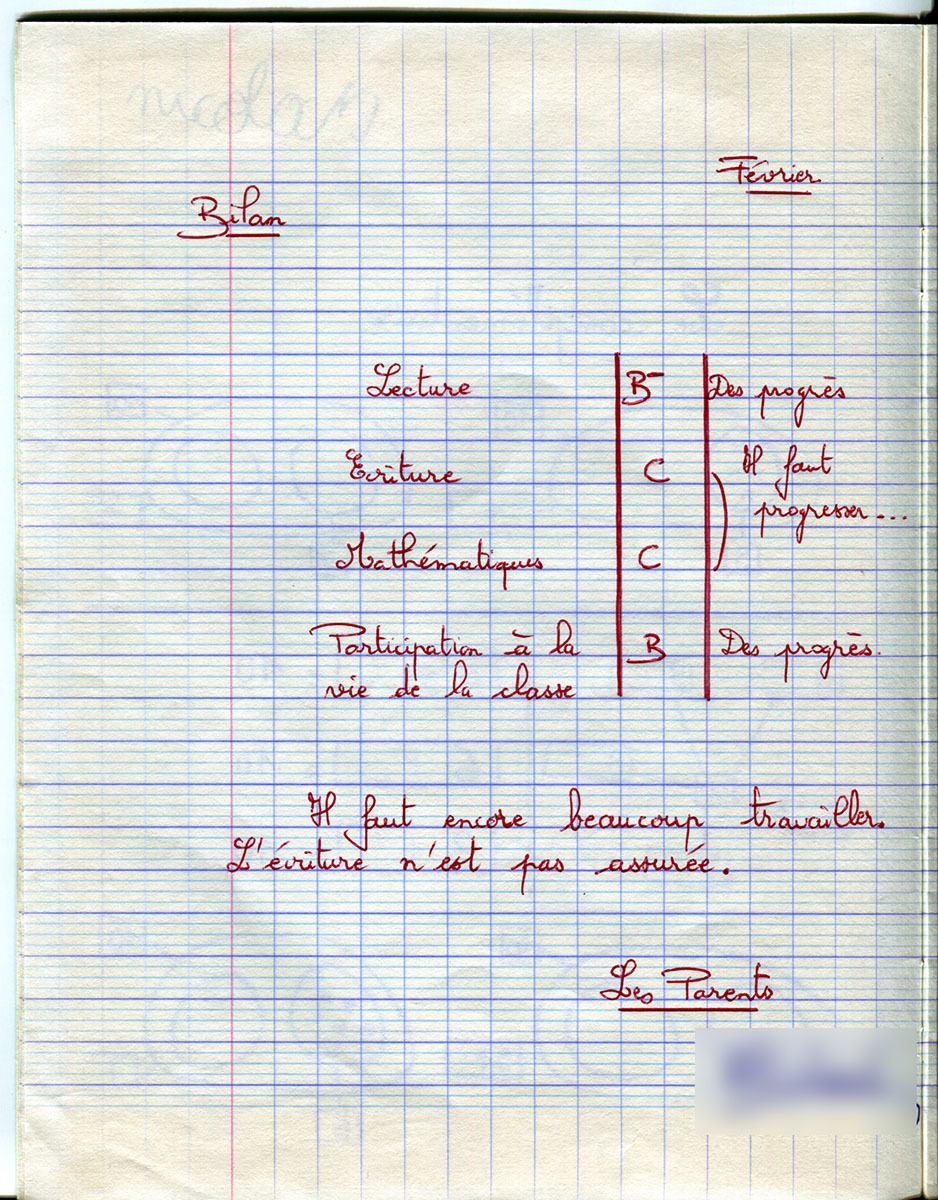 Février
Bilan
Lecture B- Des progrès
Ecriture C Il faut
progresser...
Mathématiques C
Participation à la B Des progrès.
vie de la classe
Il faut encore beaucoup travailler.
L'écriture n'est pas assurée.
Les Parents